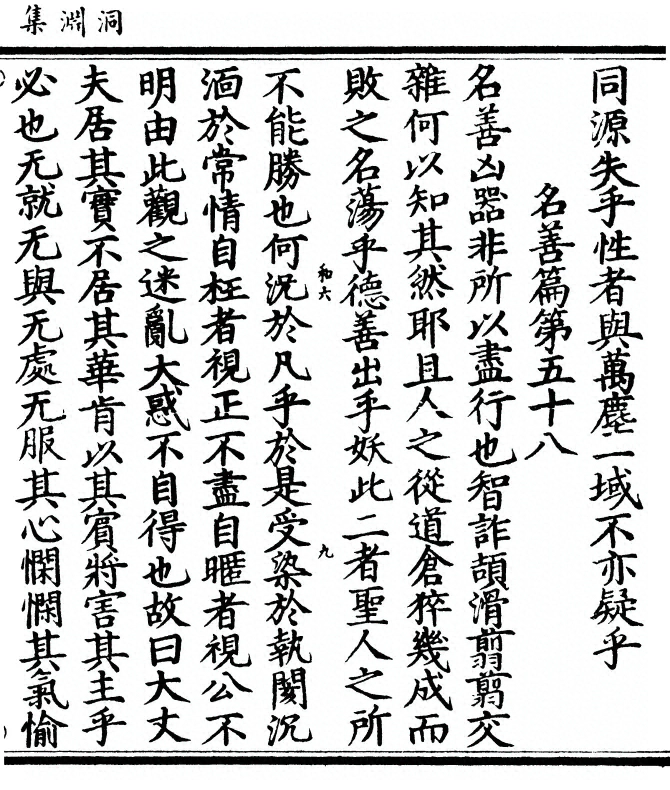 洞淵集
同源失乎性者與萬塵一域不亦疑乎
名善篇第五十八
名善凶器非所以盡行也智詐頡滑翦翦交
雜何以知其然耶且人之從道倉猝幾成而
敗之名蕩乎德善出乎妖此二者聖人之所
和六
九
不能勝也何況於凡乎於是受染於執闋沉
湎於常情自枉者視正不盡自暱者視公不
明由此觀之迷亂大惑不自得也故曰大丈
夫居其實不居其華肯以其賓將害其主乎
必也无就无與无處无服其心悃悃其氣愉